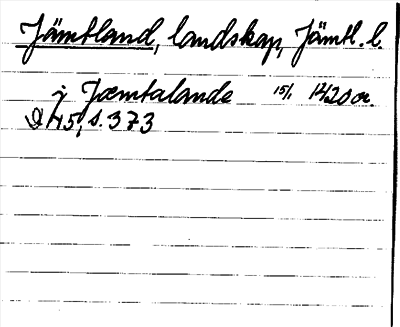 Jämtland, landskap, Jämtl. l.
j Jæmtalande 15/1 1420 or.
D 45, s. 373